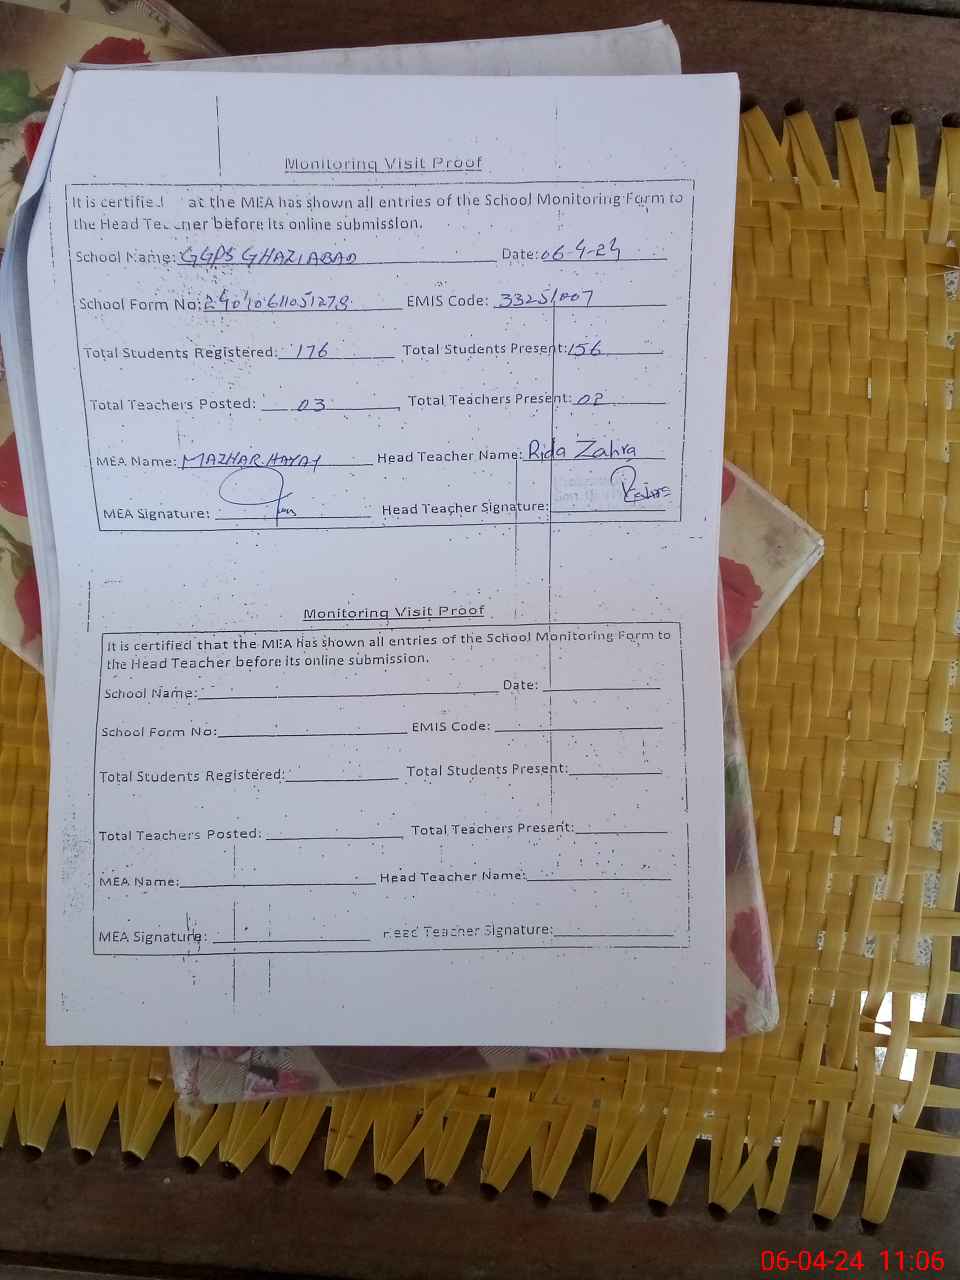 Monitoring Visit Proof
It is certified at the MEA has shown all entries of the School Monitoring Form to
the Head Teacher before its online submission.
School Name: GGPS GHAZIABAD Date: 06-4-24
School Form No: EMIS Code: 33251007
Total Students Registered: 176 Total Students Present: 156
Total Teachers Posted: 03 Total Teachers Present: 02
MEA Name: MAZHAR HAYAY Head Teacher Name: Rida Zahra
MEA Signature: Head Teacher Signature:
Monitoring Visit Proof
It is certified that the MEA has shown all entries of the School Monitoring Form to
the Head Teacher before its online submission.
School Name: Date:
School Form No: EMIS Code:
Total Students Registered: Total Students Present:
Total Teachers Posted: Total Teachers Present:
MEA Name: Head Teacher Name:
MEA Signature: Head Teacher Signature:
06-04-24 11:06